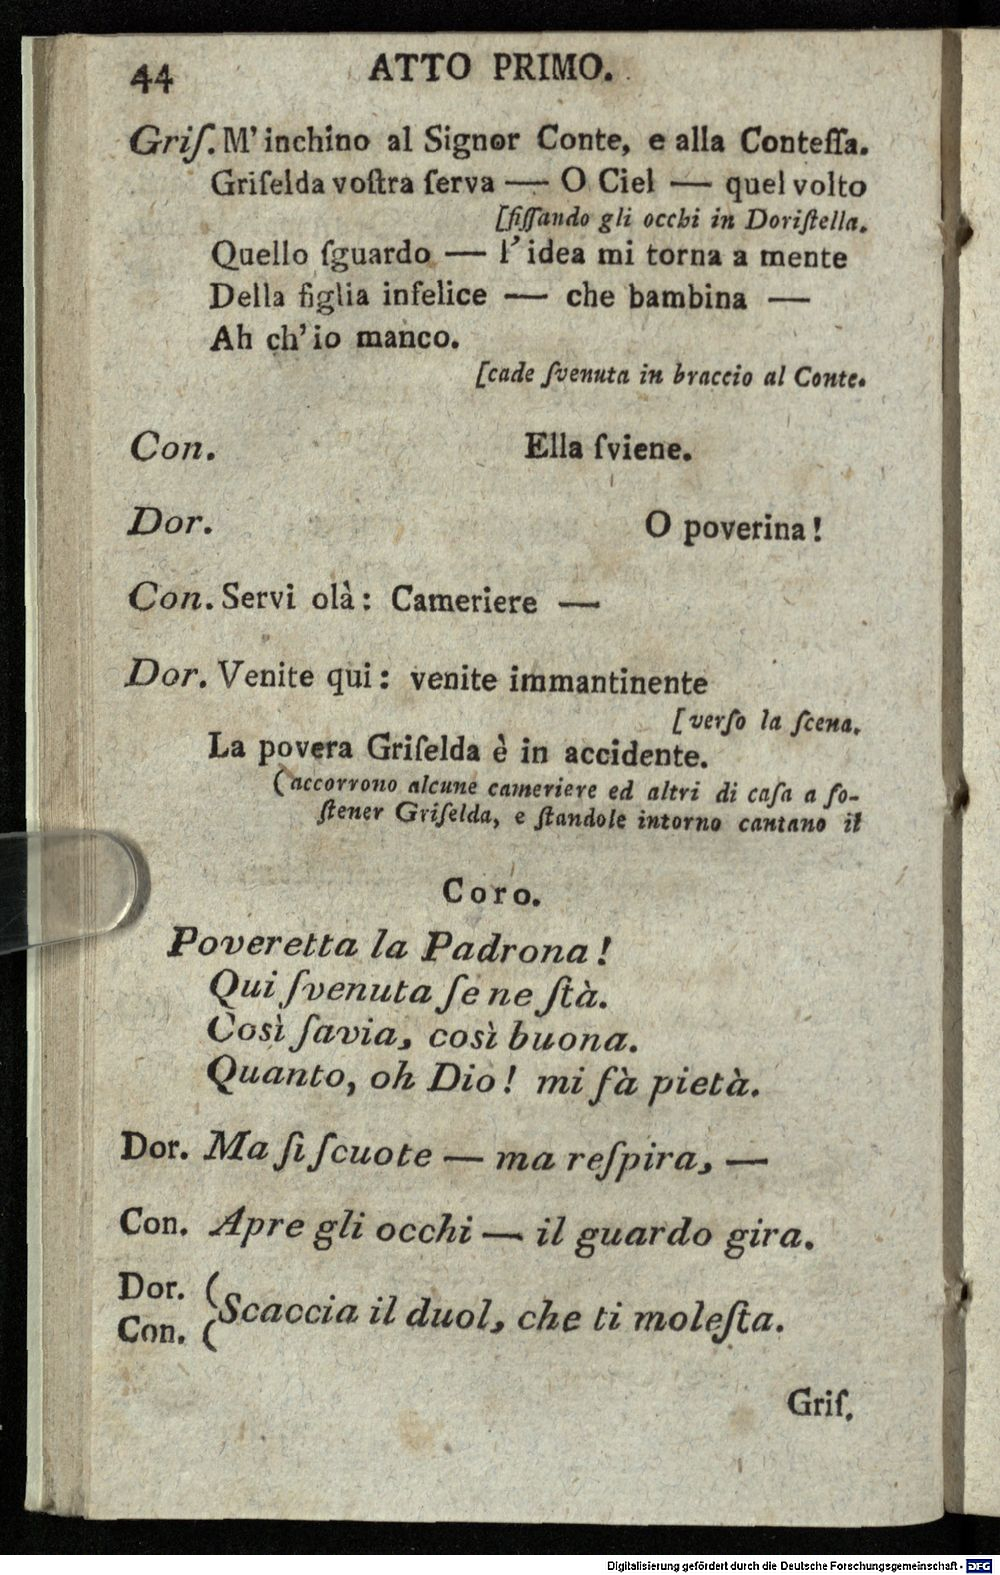 44 ATTO PRIMO.
Griſ. M' inchino al Signor Conte, e alla Conteſſa.
Griſelda voſtra ſerva — O Ciel — quel volto
[fiſſando gli occhi in Doriſtella.
Quello ſguardo — l' idea mi torna a mente
Della figlia infelice — che bambina —
Ah ch' io manco.
[cade ſvenuta in braccio al Conte.
Con. Ella ſviene.
Dor. O poverina!
Con. Servi olà: Cameriere —
Dor. Venite qui: venite immantinente
[verſo la ſcena.
La povera Griſelda è in accidente.
(accorrono alcune cameriere ed altri di caſa a ſo-
ſtener Griſelda, e ſtandole intorno cantano il
Coro.
Poveretta la Padrona!
Qui ſvenuta ſe ne ſtà.
Così ſavia, così buona.
Quanto, oh Dio! mi fà pietà.
Dor. Ma ſi ſcuote — ma reſpira, —
Con. Apre gli occhi — il guardo gira.
Dor. (
Scaccia il duol, che ti moleſta.
Con. (
Griſ.
Digitalisierung gefördert durch die Deutsche Forschungsgemeinschaft - DFG